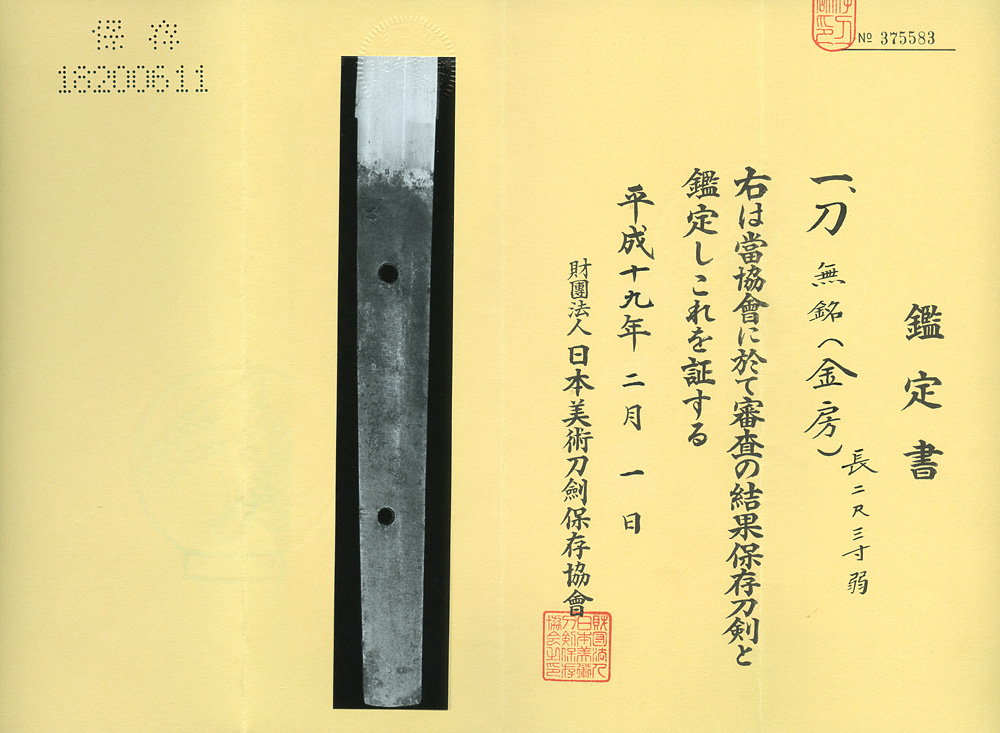 № 375583
鑑定書
一、刀 無銘(金房)
長二尺三寸弱
右は當協會に於て審査の結果保存刀剣と
鑑定しこれを証する
平成十九年二月一日
財團法人 日本美術刀劍保存協會
財団法人日本美術刀剣保存協会之印
保存
18200611